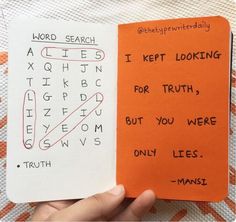 WORD SEARCH
A L I E S
X Q H J N
T I K B C
L G P D L
I Z F I U
E Y E O M
S S W V S
• TRUTH
@thetypewriterdaily
I KEPT LOOKING
FOR TRUTH,
BUT YOU WERE
ONLY LIES.
-MANSI